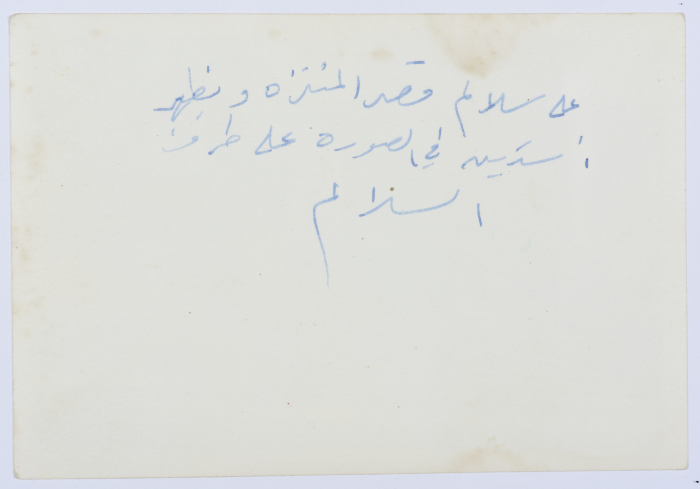 على سلالم قصر المنتزه ويظهر
أسدين في الصورة على طرف
السلالم